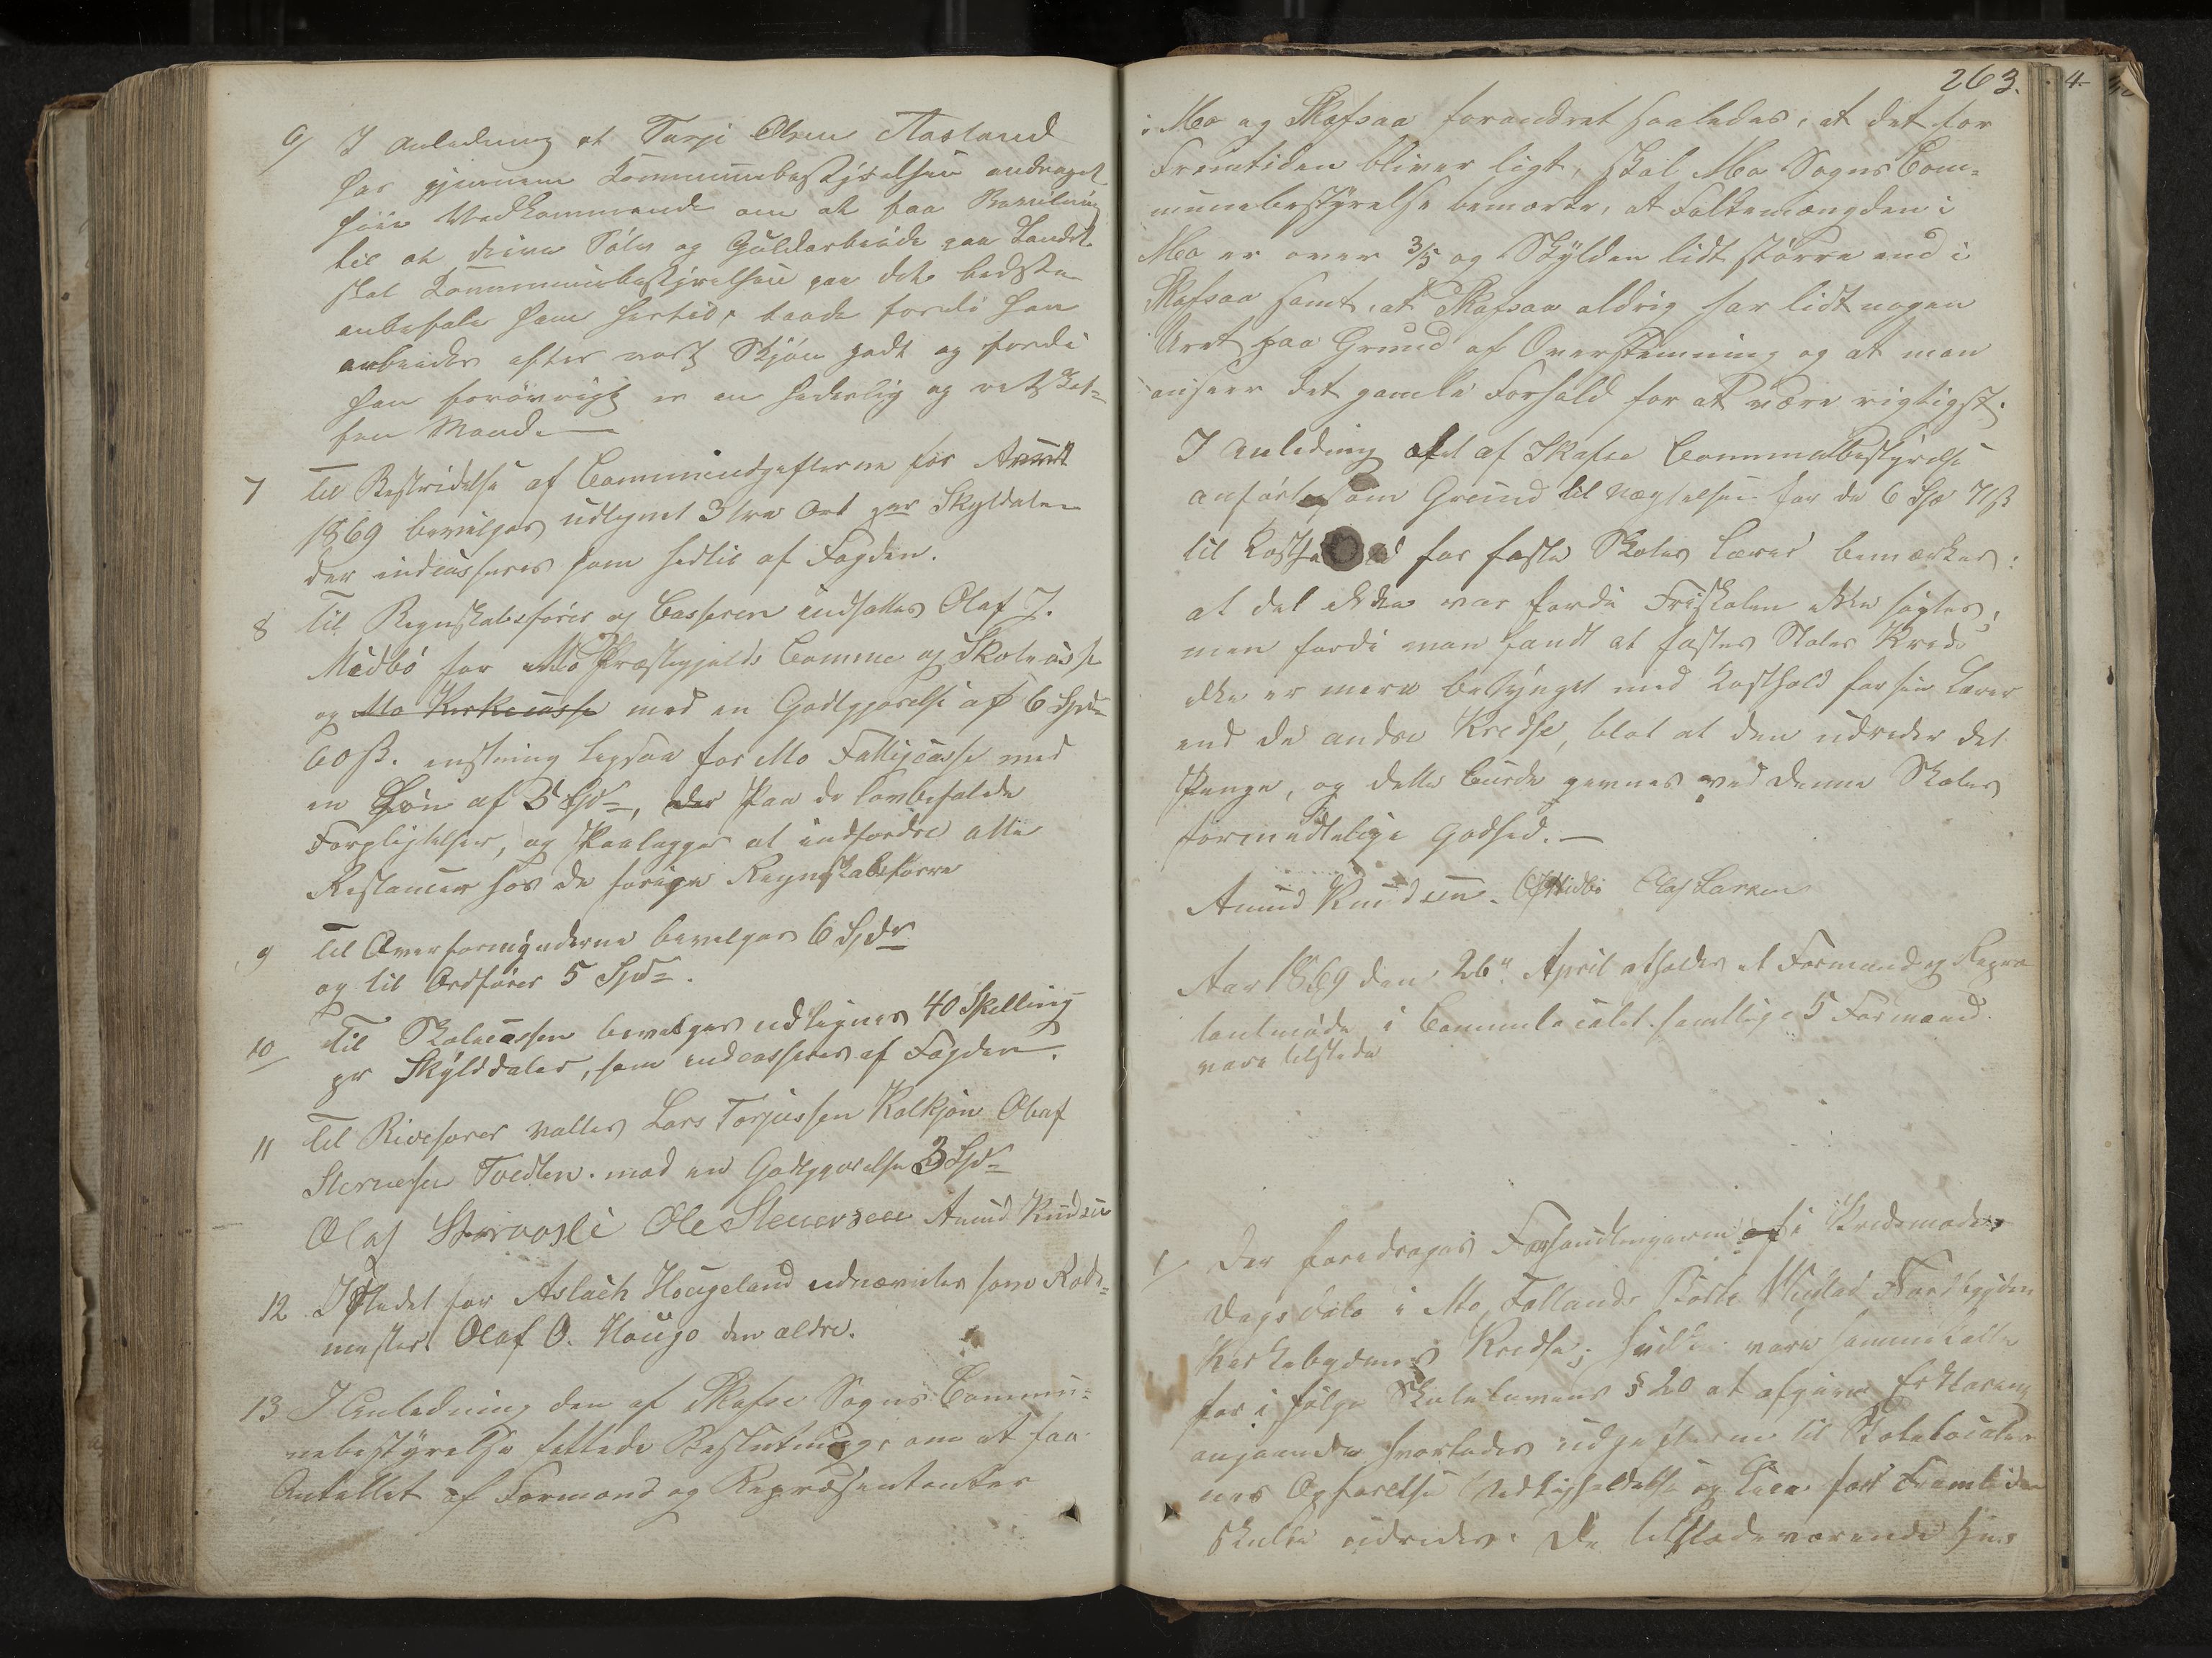 6/ I Anledning at Tarje Olsen Aasland
har gjennem Kommunebestyrelsen andraget
höie Vedkommende om at faa Bevilling
til at drive Sölv og Guldarbeide paa Landet
skal Kommunebestyrelsen paa det bedste
anbefale ham hertil, baade fordi han
arbeider efter vort Skjön godt og fordi
han forövrigt er en hæderlig og retskaf-
fen Mand. —
7 Til Bestridelse af Communeudgifterne for Aaret
1869 bevilges udlignet 3 tre Ort per Skylddaler
der indcasseres som hidtil af Fogden.
8 Til Regnskabsförer og Casserer indsattes Olaf J.
Midbö for Mo Præstegjelds Comune og Skolecasse
og Mo Kirkecasse med en Godtgjörelse af 6 Spd
60 ß. ligesaa for Mo Fattigcasse med
en Lön af 3 Spd, der Paa de lovbefalede
Forpligtelser, og Paalægges at indfordre alle
Restancer hos de forige Regnskabsförere
9 Til Overformynderne bevilges 6 Spdr
og til Ordförer 5 Spd.
10 Til Skolecassen bevilges udlignes 40 Skilling
pr Skylddaler, som indcasseres af Fogden.
11 Til valtes Lars Torjussen Kalkjön Olaf
Tvedten. mod en Godtgjörelse 3 Spd
Olaf Ole Steinersen Amund Knudsen
12 I Stedet for Aslach Hougeland udnævntes som Rode-
mester Olaf O. Hougo den ældre.
13 I Anledning den af Skafse Sogns Commu-
nebestyrelse fattede Beslutning, om at faa
Antallet af Formænd og Repræsentanter
263.
4
i Mo og Skafsaa forandret saaledes, at det for
Fremtiden bliver ligt, skal Mo Sogns Com-
munebestyrelse bemærke, at Folkemængden i
Mo er over 3/5 og Skylden lidt större end i
Skafsaa samt, at Skafsaa aldrig har lidt nogen
Uret paa Grund af Overstemning og at man
anseer det gamle Forhold for at være rigtigst.
I Anledning af det af Skafse Communebestyrelse
anförte som Grund til Nægtelsen for de 6 Spd 71 ß
til Kosthold for faste Skoles Lærer bemærkes:
at det ikke var fordi Friskolen ikke sögtes,
men fordi man fandt at fastes Skoles Kreds
ikke er mere betynget med Kosthold for sin Lærer
end de andre Kredse, blot at den udreder det
Penge, og dette burde gjævnes ved denne Skoles
formedtelige Godhed. —
Amund Knudsen. OJMidbö Olaf Larsen
Aar 1869 den 26d April atholdes et Formænd og Repræ
tantmöde i Communelocalet. samtlige 5 Formænd
vare tilstede
1/ Der foredroges Forhandlingerne af i Kredsmöder
Dagsvolo i Mo, Fællands Börte Fardbygden
Kirkebygdens Kredse; hvilke vare sammenkaldte
for i fölge Skolelovens § 20 at afgive Erklæring
angaaende hvorledes udgifterne til Skolelocaler
nes Opförelse Vedligeholdelse og Leie for Fremtiden
skulde udredes. De tilstedeværende Hus